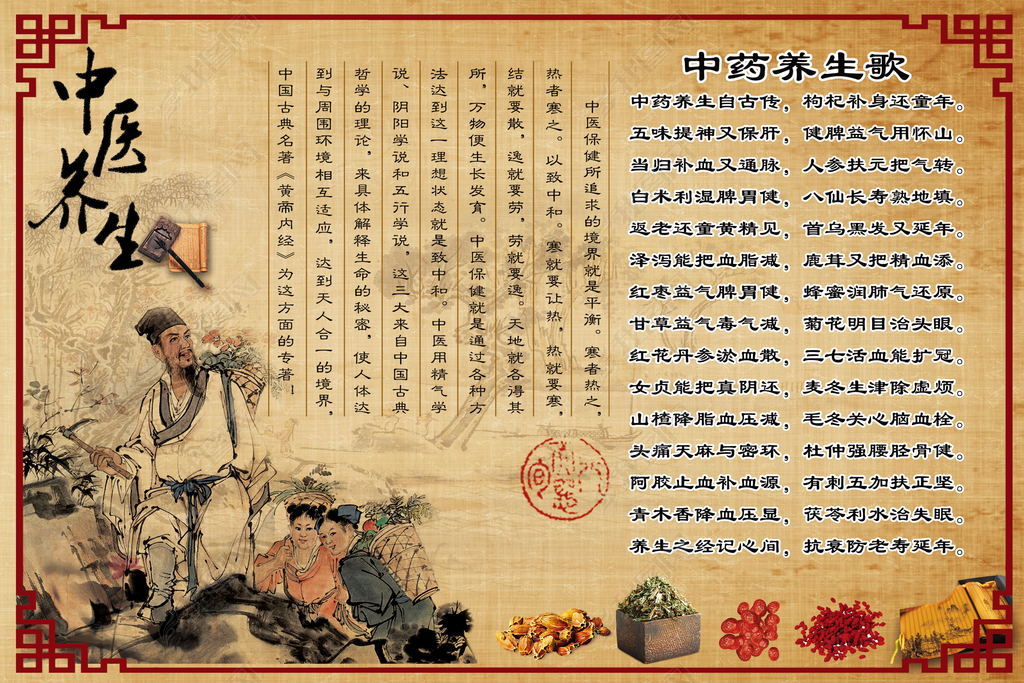 中医养生
中医保健所追求的境界就是平衡。寒者热之，
热者寒之。以致中和。寒就要让热，热就要寒，
结就要散，逸就要劳，劳就要逸。天地就各得其
所，万物便生长发育。中医保健就是通过各种方
法达到这一理想状态就是致中和。中医用精气学
说、阴阳学说和五行学说，这三大来自中国古典
哲学的理论，来具体解释生命的秘密，使人体达
到与周围环境相互适应，达到天人合一的境界，
中国古典名著《黄帝内经》为这方面的专著！
中药养生歌
中药养生自古传，枸杞补身还童年。
五味提神又保肝，健脾益气用怀山。
当归补血又通脉，人参扶元把气转。
白术利湿脾胃健，八仙长寿熟地填。
返老还童黄精见，首乌黑发又延年。
泽泻能把血脂减，鹿茸又把精血添。
红枣益气脾胃健，蜂蜜润肺气还原。
甘草益气毒气减，菊花明目治头眼。
红花丹参淤血散，三七活血能扩冠。
女贞能把真阴还，麦冬生津除虚烦。
山楂降脂血压减，毛冬关心脑血栓。
头痛天麻与密环，杜仲强腰胫骨健。
阿胶止血补血源，有刺五加扶正坚。
青木香降血压显，茯苓利水治失眠。
养生之经记心间，抗衰防老寿延年。